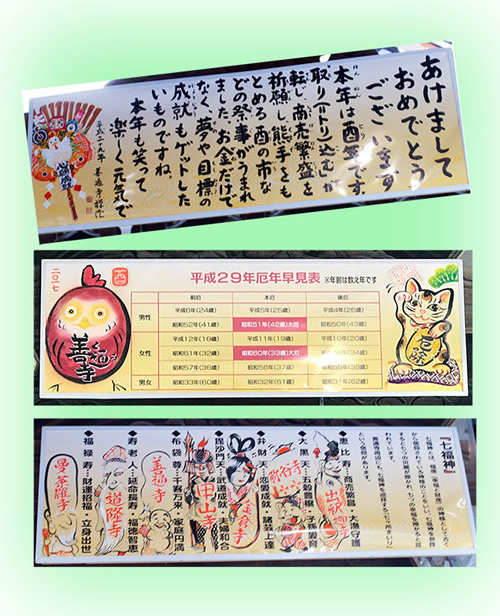 あけまして
おめでとう
ございます
本年は酉年です
取り(トリ)込むが
転じ商売繁盛を
祈願し熊手をも
とめる酉の市な
どの祭事がうまれ
ました。お金だけで
なく夢や目標の
成就もゲットした
いものですね。
本年も笑って
楽しく元気で
平成二十九年
二〇一七
酉
善通寺
平成29年厄年早見表 ※年齢は数え年です
前厄 本厄 後厄
男性 平成6年(24歳) 平成5年(25歳) 平成4年(26歳)
昭和52年(41歳) 昭和51年(42歳)大厄 昭和50年(43歳)
女性 平成12年(18歳) 平成11年(19歳) 平成10年(20歳)
昭和61年(32歳) 昭和60年(33歳)大厄 昭和59年(34歳)
昭和57年(36歳) 昭和56年(37歳) 昭和55年(38歳)
男女 昭和33年(60歳) 昭和32年(61歳) 昭和31年(62歳)
厄除
『七福神』
◆恵比寿…商売繁昌 大漁守護
出釈迦寺
◆大黒天…五穀豊穣 子孫愛育
◆弁財天…恋愛成就 諸芸上達
金倉寺
◆毘沙門天…武道成就 夫婦和合
甲山寺
◆布袋尊…千客万来 家庭円満
善通寺
◆寿老人…延命長寿 福徳智恵
道隆寺
◆福禄寿…財運招福 立身出世
曼荼羅寺